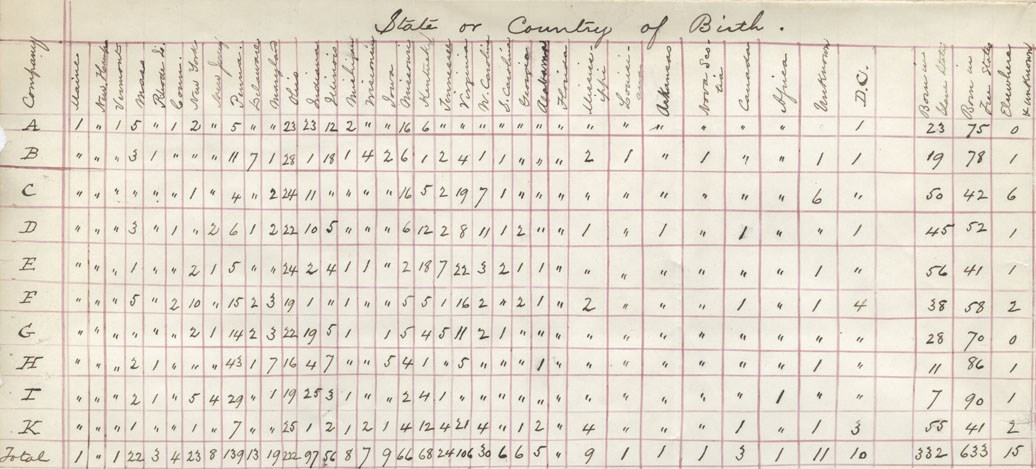 State or Country of Birth.
Company Maine New Hamp Vermont Mass Rhode I. Conn. New York New Jersey Penna Delaware Maryland Ohio Indiana Illinois Michigan Wisconsin Iowa Missouri Kentucky Tennessee Virginia N. Carolin S. Carolin Georgia Alabama Florida Mississippi Louisiana Arkansas Nova Scotia Canada Africa Unknown D.C. Born in Slave State Born in Free State Elsewhere Unknown
A 1 " 1 5 " 1 2 " 5 " " 23 23 12 2 " " 16 6 " " " " " " " " " " " " " " 1 23 75 0
B " " " 3 1 " " " 11 7 1 28 1 18 1 4 2 6 1 2 4 1 1 " " " 2 1 " 1 " " 1 1 19 78 1
C " " " " " " 1 " 4 " 2 24 11 " " " " 16 5 2 19 7 1 " " " " " " " " " 6 " 50 42 6
D " " " 3 " 1 " 2 6 1 2 22 10 5 " " " 6 12 2 8 11 1 2 " " 1 " 1 " 1 " " 1 45 52 1
E " " " 1 " " 2 1 5 " " 24 2 4 1 1 " 2 18 7 22 3 2 1 1 " " " " " " " 1 " 56 41 1
F " " " 5 " 2 10 " 15 2 3 19 1 " 1 " " 5 5 1 16 2 " 2 1 " 2 " " " 1 " 1 4 38 58 2
G " " " " " " 2 1 14 2 3 22 19 5 1 1 5 4 5 11 2 1 " " " " " " " " " " " 28 70 0
H " " " 2 1 " " " 43 1 7 16 4 7 " " 5 4 1 " 5 " " " 1 " " " " " " " 1 " 11 86 1
I " " " 2 1 " 5 4 29 " 1 19 25 3 1 " " 2 4 1 " " " " " " " " " " " 1 " " 7 90 1
K " " " 1 " " 1 " 7 " " 25 1 2 1 2 1 4 12 4 21 4 " 1 2 " 4 " " " 1 " 1 3 55 41 2
Total 1 " 1 22 3 4 23 8 139 13 19 222 97 56 8 7 9 66 68 24 106 30 6 6 5 " 9 1 1 1 3 1 11 10 332 633 15